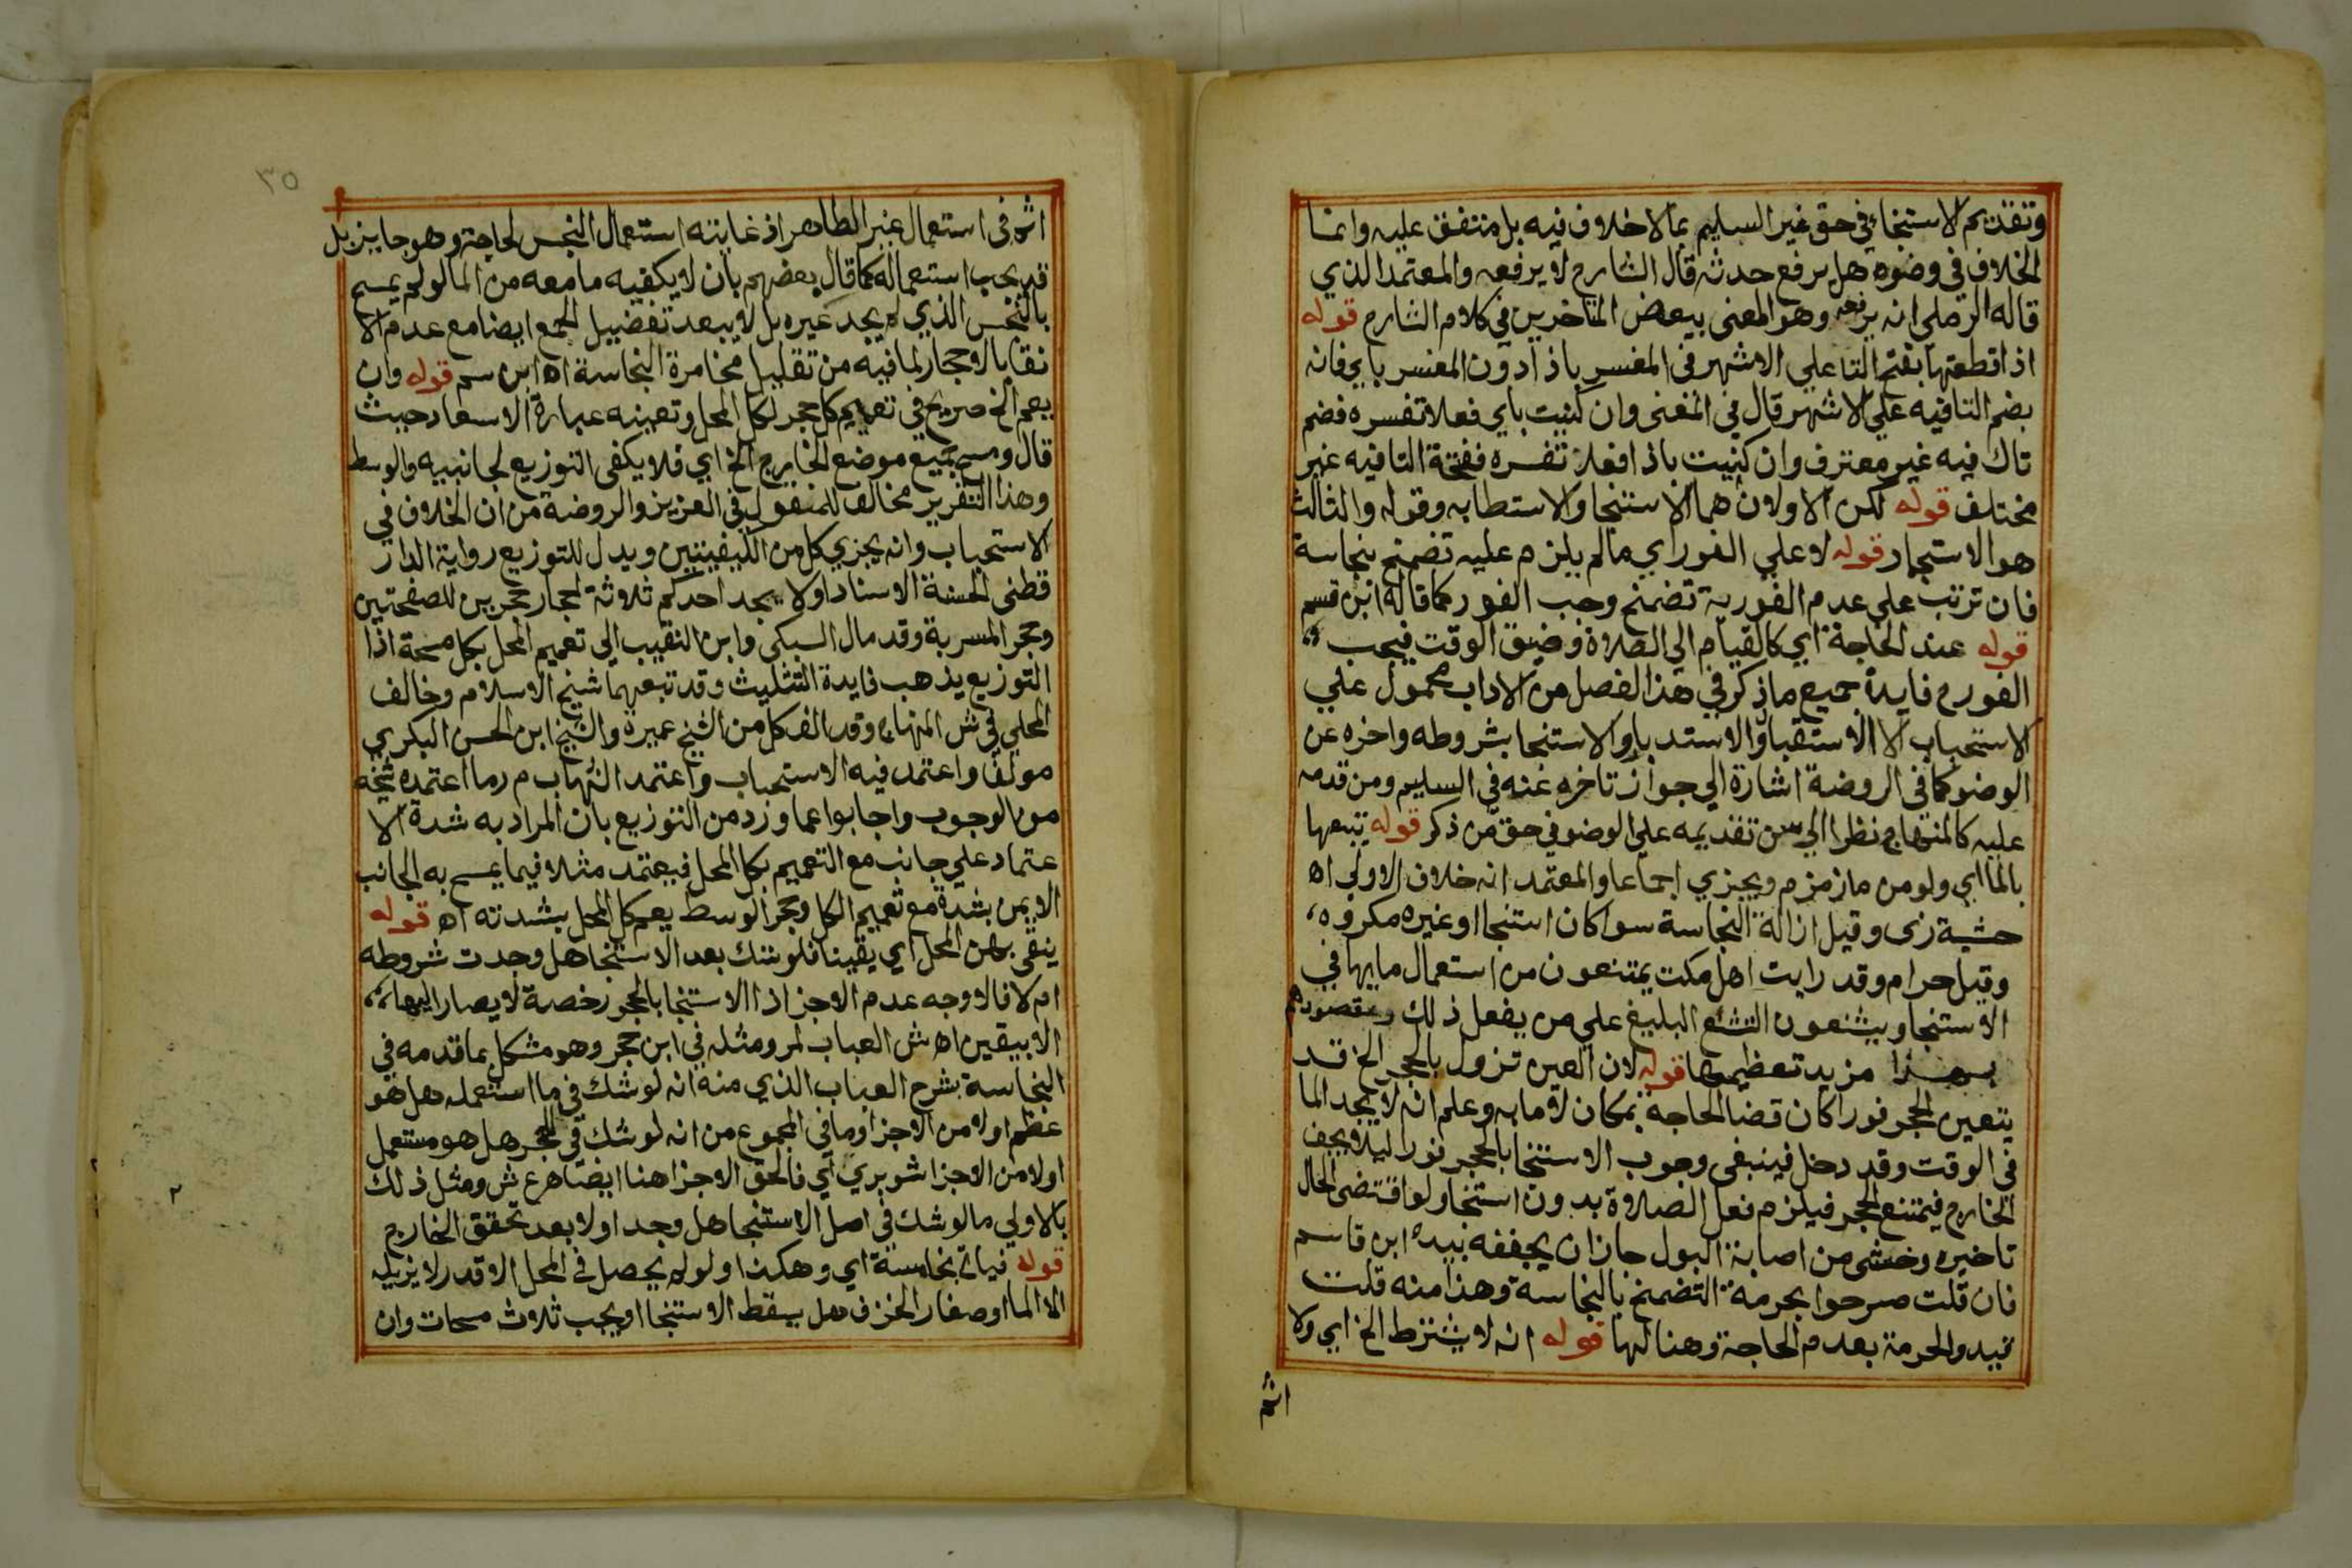 وتقديم الاستنجاء في حق غير السليم بما لا خلاف فيه بل متفق عليه وانما
الخلاف في وضوه هل يرفع حدثه قال الشارح لا يرفعه والمعتمد الذي
قاله الرملي انه يرفعه وهو المعنى ببعض المتاخرين في كلام الشارح قوله
اذا قطعتها بفتح التا علي الاشهر في المفسر باذا دون المفسر باي فانه
بضم التا فيه علي الاشهر قال في المغنى وان كنيت باي فعلا تفسره فضم
تاك فيه غير معترف وان كنيت باذا فعلا تفسره ففتحة التا فيه غير
مختلف قوله لكن الاولان هما الاستنجا والاستطابه وقوله والثالث
هو الاستجمار قوله لا علي الفور اي ما لم يلزم عليه تضمخ بنجاسة
فان ترتب علي عدم الفورية تضمخ وجب الفور كما قاله ابن قسم
قوله عند الحاجة اي كالقيام الي الصلاة وضيق الوقت فيجب
الفور ح فايدة جميع ما ذكر في هذا الفصل من الاداب محمول علي
الاستحباب الا الاستقبال والاستدبار والاستنجا بشروطه واخره عن
الوضو كما في الروضة اشارة الي جواز تاخره عنه في السليم ومن قدمه
عليه كالمنهاج نظرا الي سن تقديمه علي الوضو في حق من ذكر قوله يتبعها
بالما اي ولو من ما زمزم ويجزي اجماعا والمعتمد انه خلاف الاولي اه
حشية زى وقيل ازالة النجاسة سوا كان استنجا او غيره مكروه،
وقيل حرام وقد رايت اهل مكت يمتنعون من استعمال مايها في
الاستنجا ويشنعون التشنع البليغ علي من يفعل ذلك ومقصودهم
بهذا مزيد تعظيمها قوله لان العين تزول بالحجر الخ قد
يتعين الحجر فورا كان قضا الحاجه بمكان لا ما به وعلم انه لا يجد الما
في الوقت وقد دخل فينبغي وجوب الاستنجا بالحجر فورا ليلا يجف
الخارج فيمتنع الحجر فيلزم فعل الصلاة بدون استنجا ولو اقتضى الحال
تاخيره وخشى من اصابة البول جاز ان يجففه بيده ابن قاسم
فان قلت صرحوا بحرمة التضمخ بالنجاسة وهذا منه قلت
قيدوا الحرمة بعدم الحاجة وهنا لها قوله انه لا يشترط الخ اي ولا
اثم
٣٥
اثم في استعمال غير الطاهر اذ غايته استعمال النجس لحاجة وهو جايز بل
قد يجب استعماله كما قال بعضهم بان لا يكفيه ما معه من الما لو لم يمسح
بالنجس الذي لم يجد غيره بل لا يبعد تفضيل الجمع ايضا مع عدم الا
نقا بالاحجار لما فيه من تقليل مخامرة النجاسة اه ابن سم قوله وان
يعم الخ صريح في تعميم كل حجر لكل المحل وتعينه عبارة الاسعاد حيث
قال ومسح جميع موضع الخارج الخ اي فلا يكفى التوزيع لجانبيه والوسط
وهذا التقرير مخالف للمنقول في العزيز والروضة من ان الخلاف في
الاستحباب وانه يجزي كل من الكيفيتين ويدل للتوزيع رواية الدار
قطنى الحسنة الاسناد اولا يجد احدكم ثلاثة احجار حجرين للصفحتين
وحجر المسربة وقد مال السبكى وابن النقيب الي تعميم المحل بكل مسحة اذا
التوزيع يذهب فايدة التثليث وقد تبعهما شيخ الاسلام وخالف
المحلي في ش المنهاج وقد الف كل من الشيخ عميرة والشيخ ابن الحسن البكري
مولفا واعتمد فيه الاستحباب واعتمد الشهاب م ر ما اعتمده شيخه
من الوجوب واجابوا عما ورد من التوزيع بان المراد به شدة الا
عتماد علي جانب مع التعميم بكل المحل فيعتمد مثلا فيما يمسح به الجانب
الايمن بشدة مع تعميم الكل وحجر الوسط يعم كل المحل بشدته اه قوله
ينقى بهن المحل اي يقينا فلو شك بعد الاستنجا هل وجدت شروطه
ام لا فالاوجه عدم الاجزا اذ الاستنجا بالحجر رخصة لا يصار اليها
الا بيقين اه ش العباب لمر ومثله في ابن حجر وهو مشكل بما قدمه في
النجاسة بشرح العباب الذي منه انه لو شك في ما استعمله هل هو
عظم اولا من الاجزا وما في المجموع من انه لو شك في الحجر هل هو مستعمل
اولا من الاجزا شوبري اي فالحق الاجزا هنا ايضا اهر ع ش ومثل ذلك
بالاولي ما لو شك في اصل الاستنجا هل وجد اولا بعد تحقق الخارج
قوله فيات بخامسة اي وهكذا ولو لم يحصل في المحل الا قدر لا يزيله
الا الما او صغار الخزف هل يسقط الاستنجا او يجب ثلاث مسحات وان